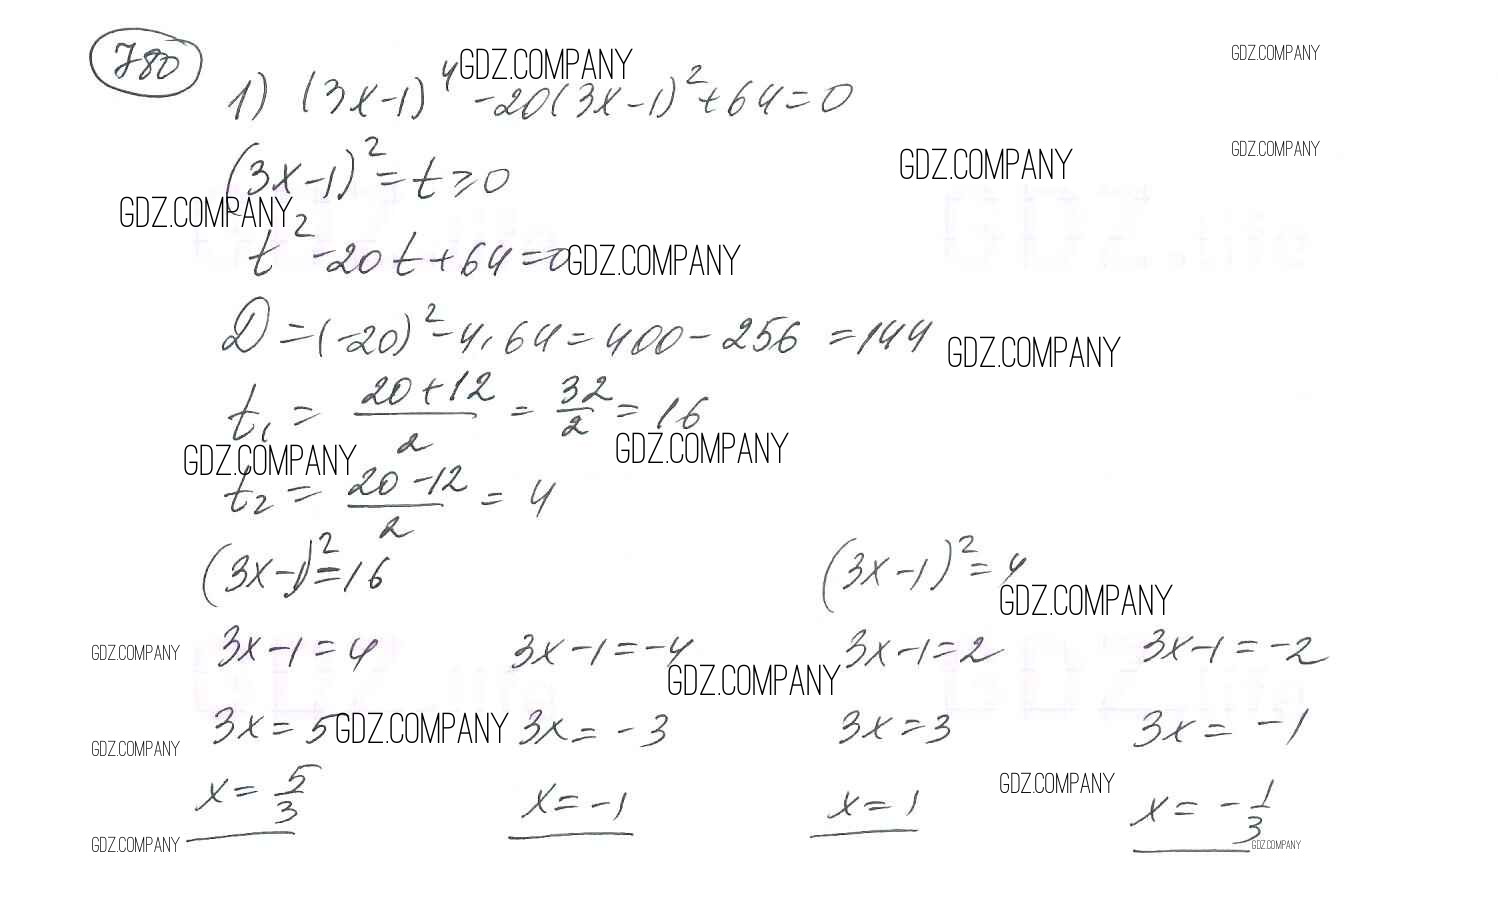 780
GDZ.COMPANY
GDZ.COMPANY
1) (3x-1)⁴ -20(3x-1)²+64=0
(3x-1)²=t≥0
GDZ.COMPANY
GDZ.COMPANY
GDZ.COMPANY
t²-20t+64=0
GDZ.COMPANY
D=(-20)²-4·64=400-256=144
GDZ.COMPANY
t₁ = (20+12)/2 = 32/2 = 16
GDZ.COMPANY
GDZ.COMPANY
t₂ = (20-12)/2 = 4
(3x-1)²=16 (3x-1)²=4
GDZ.COMPANY
3x-1=4 3x-1=-4 3x-1=2 3x-1=-2
GDZ.COMPANY
GDZ.COMPANY
3x=5 3x=-3 3x=3 3x=-1
GDZ.COMPANY
GDZ.COMPANY
x=5/3 x=-1 x=1 x=-1/3
GDZ.COMPANY
GDZ.COMPANY
GDZ.COMPANY
GDZ.life
GDZ.life
GDZ.life
GDZ.life